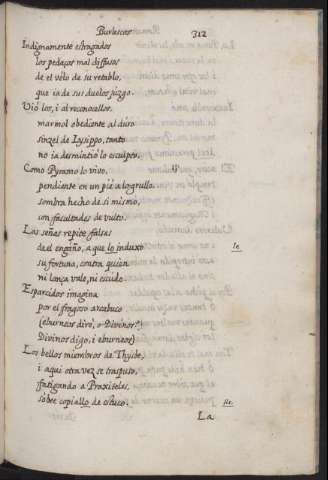 Burlescos 312
Indignamente estragados
los pedaços mal diffusos
de el velo de su retablo,
que ia de sus duelos juzgo.
Viólos, i al reconocellos
marmol obediente al duro
sinzel de Lysippo, tanto
no ia desmintió lo esculpto,
Como Pyramo lo vivo,
pendiente en un pie a lo grullo,
sombra hecho de si mismo,
con facultades de vulto.
Las señas repite falsas
de el engaño, a que lo induxo
su fortuna, contra quien
ni lança vale, ni escudo.
Esparcidos imagina
por el fragoso arcabuco
(eburneos diré, o Divinos?
Divinos digo, i eburneos)
Los bellos miembros de Thysbe,
i aqui otra vez se traspuso,
fatigando a Praxiteles,
sobre copiallo de estuco.
La